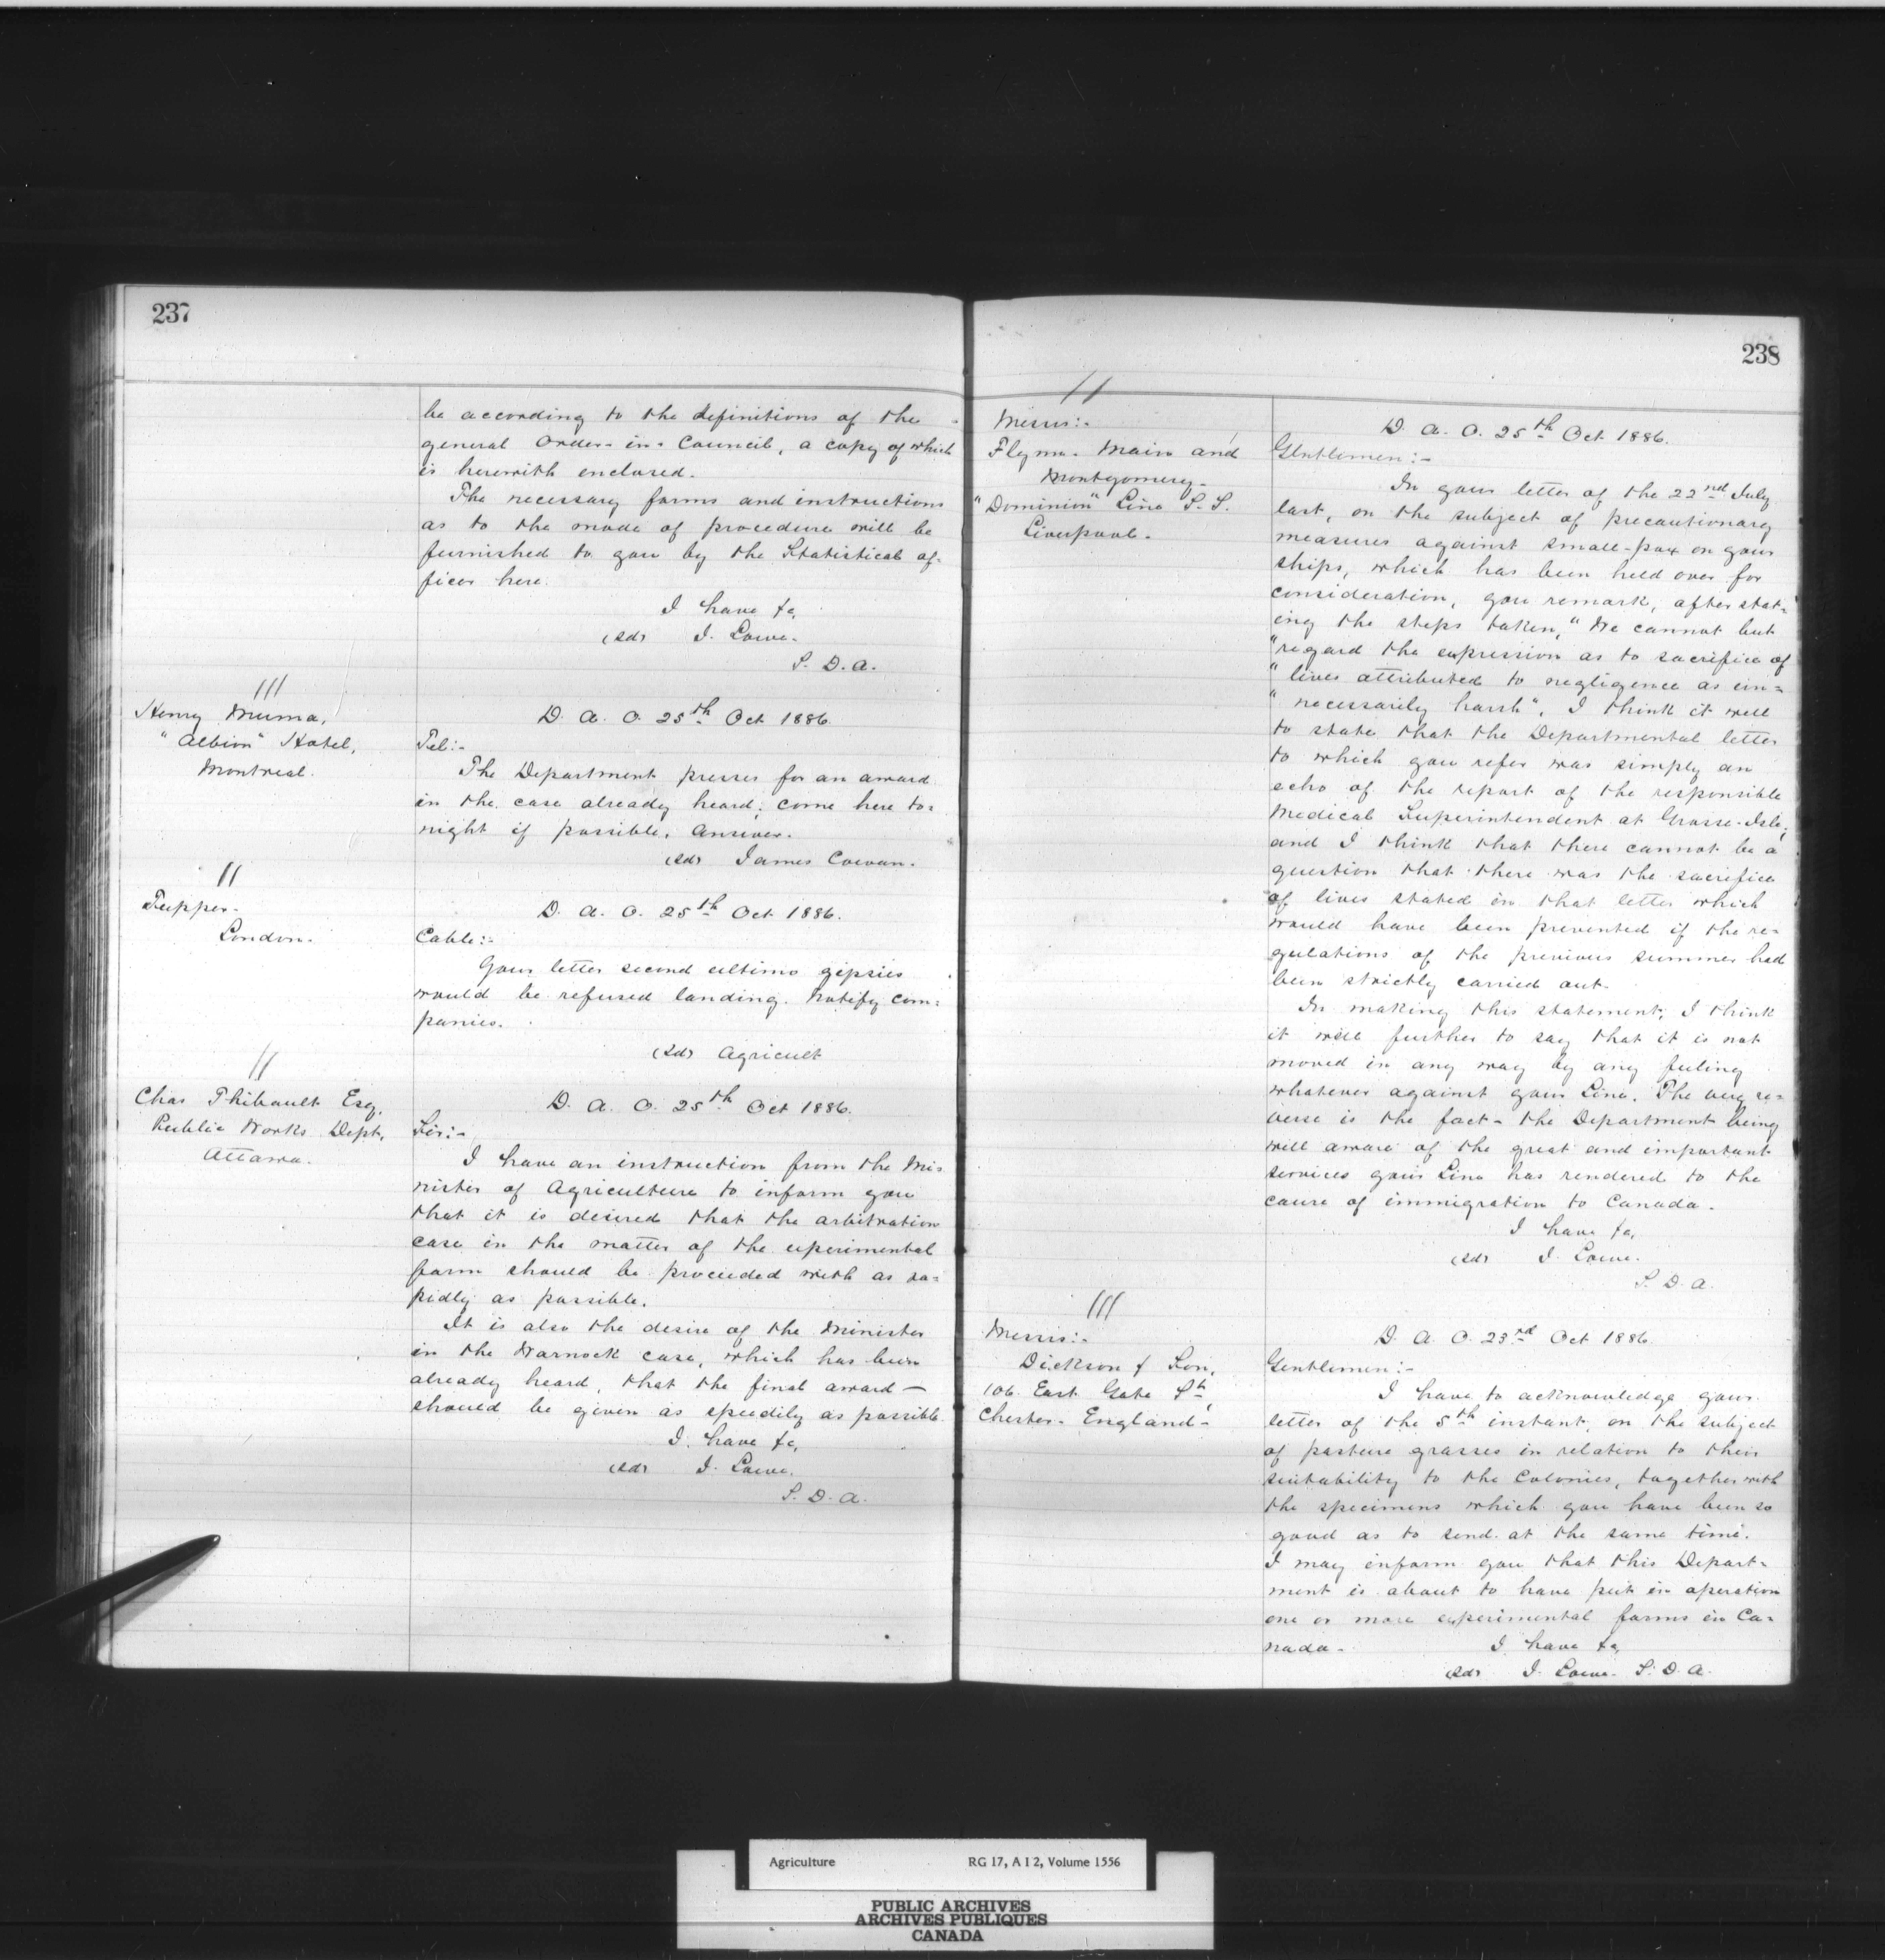 237
be according to the definitions of the
general Order-in-Council, a copy of which
is herewith enclosed.
The necessary forms and instructions
as to the mode of procedure will be
furnished to you by the Statistical of-
ficer here.
I have &c,
(sd) J. Lowe.
S. D. A.
///
Henry Muma,
"Albion" Hotel,
Montreal.
D. A. O. 25th Oct 1886.
Tel:-
The Department presses for an award
in the case already heard; come here to=
night if possible. Answer.
(sd) James Cowan.
//
Tupper.
London.
D. A. O. 25th Oct 1886.
Cable:-
Your letter second ultimo gipsies
would be refused landing. Notify com=
panies.
(sd) Agricult
//
Chas Thibault Esq,
Public Works Dept,
Ottawa.
D. A. O. 25th Oct 1886.
Sir:-
I have an instruction from the Mi=
nister of Agriculture to inform you
that it is desired that the arbitration
case in the matter of the experimental
farm should be proceeded with as ra=
pidly as possible.
It is also the desire of the Minister
in the Warnock case, which has been
already heard, that the final award —
should be given as speedily as possible.
I have &c,
(sd) J. Lowe.
S. D. A.
238
//
Messrs:-
Flynn. Main and
Montgomery.
"Dominion" Line S. S.
Liverpool.
D. A. O. 25th Oct 1886.
Gentlemen:-
In your letter of the 22nd July
last, on the subject of precautionary
measures against small-pox on your
ships, which has been held over for
consideration, you remark, after stat=
ing the steps taken, "We cannot but
"regard the expression as to sacrifice of
"lives attributed to negligence as un=
"necessarily harsh". I think it well
to state that the Departmental letter
to which you refer was simply an
echo of the report of the responsible
Medical Superintendent at Grosse-Isle,
and I think that there cannot be a
question that there was the sacrifice
of lives stated in that letter which
would have been prevented if the re=
gulations of the previous summer had
been strictly carried out.
In making this statement, I think
it well further to say that it is not
moved in any way by any feeling
whatever against your Line. The very re=
verse is the fact - the Department being
well aware of the great and important
services your Line has rendered to the
cause of immigration to Canada.
I have &c,
(sd) J. Lowe.
S. D. A.
///
Messrs:-
Dickson & Son,
106. East Gate St,
Chester. England-
D. A. O. 23rd Oct 1886.
Gentlemen:-
I have to acknowledge your
letter of the 5th instant, on the subject
of pasture grasses in relation to their
suitability to the Colonies, together with
the specimens which you have been so
good as to send at the same time.
I may inform you that this Depart=
ment is about to have put in operation
one or more experimental farms in Ca=
nada.
I have &c,
(sd) J. Lowe. S. D. A.
Agriculture RG 17, A I 2, Volume 1556
PUBLIC ARCHIVES
ARCHIVES PUBLIQUES
CANADA